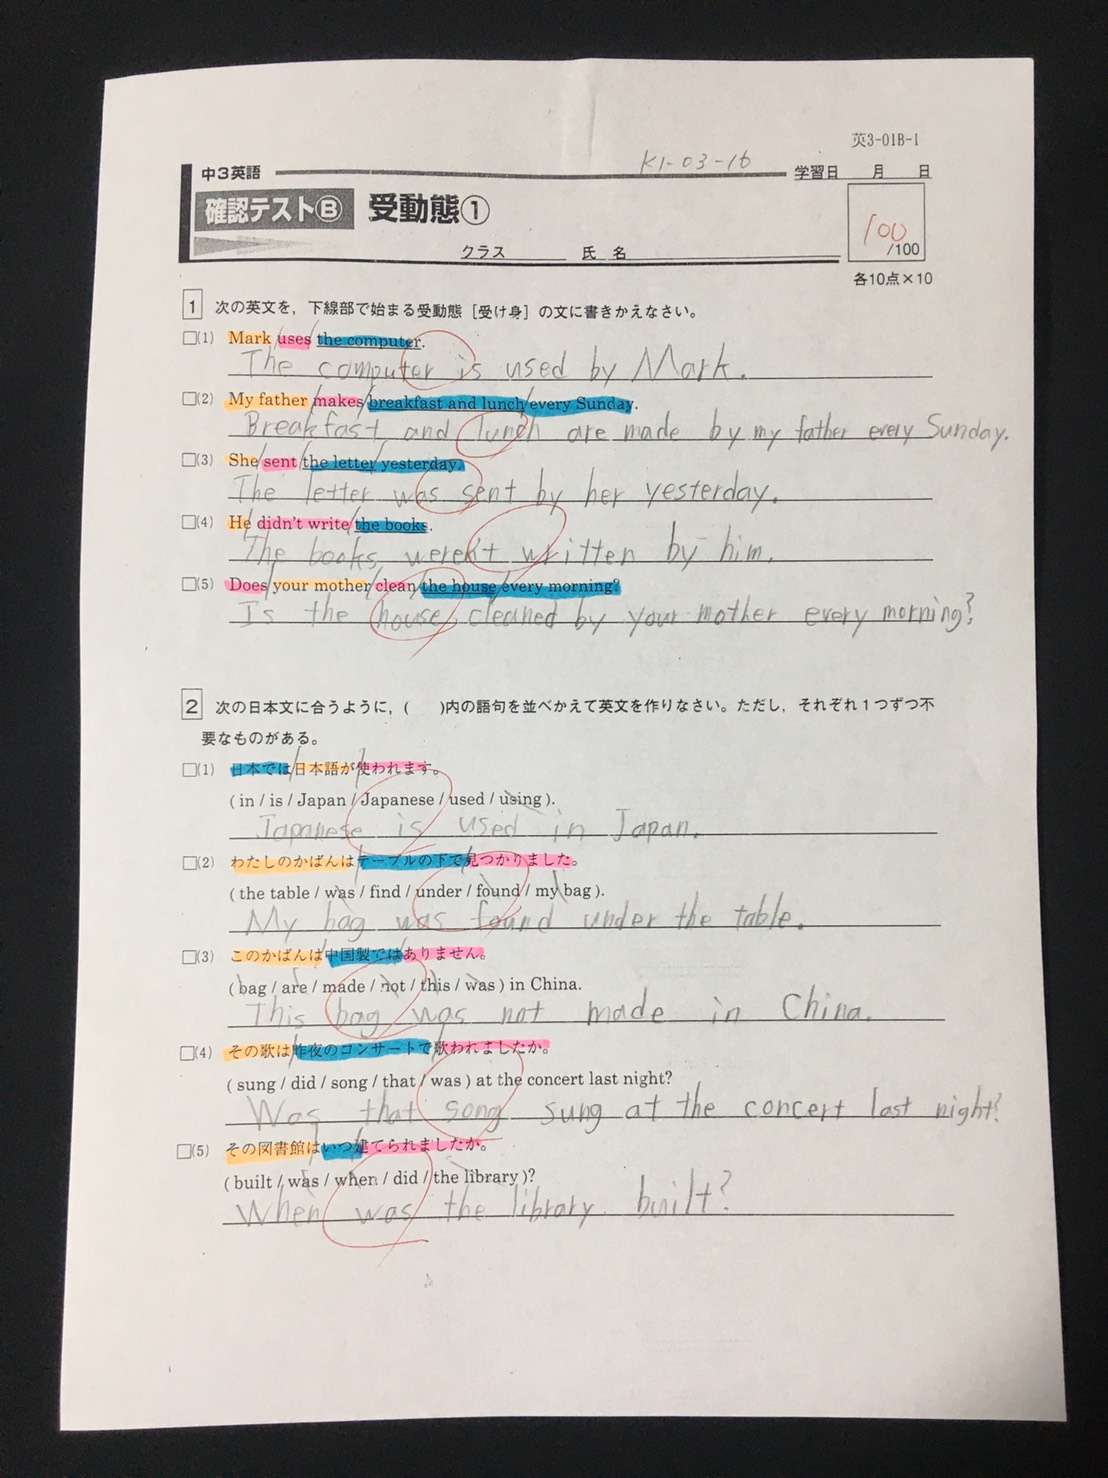 英3-01B-1
K1-03-16
中3英語 学習日 月 日
確認テストⒷ 受動態①
100
/100
クラス 氏名
各10点×10
1 次の英文を，下線部で始まる受動態［受け身］の文に書きかえなさい。
□(1) Mark uses the computer.
The computer is used by Mark.
□(2) My father makes breakfast and lunch every Sunday.
Breakfast and lunch are made by my father every Sunday.
□(3) She sent the letter yesterday.
The letter was sent by her yesterday.
□(4) He didn't write the books.
The books weren't written by him.
□(5) Does your mother clean the house every morning?
Is the house cleaned by your mother every morning?
2 次の日本文に合うように，( )内の語句を並べかえて英文を作りなさい。ただし，それぞれ１つずつ不
要なものがある。
□(1) 日本では日本語が使われます。
( in / is / Japan / Japanese / used / using ).
Japanese is used in Japan.
□(2) わたしのかばんはテーブルの下で見つかりました。
( the table / was / find / under / found / my bag ).
My bag was found under the table.
□(3) このかばんは中国製ではありません。
( bag / are / made / not / this / was ) in China.
This bag was not made in China.
□(4) その歌は昨夜のコンサートで歌われましたか。
( sung / did / song / that / was ) at the concert last night?
Was that song sung at the concert last night?
□(5) その図書館はいつ建てられましたか。
( built / was / when / did / the library )?
When was the library built?